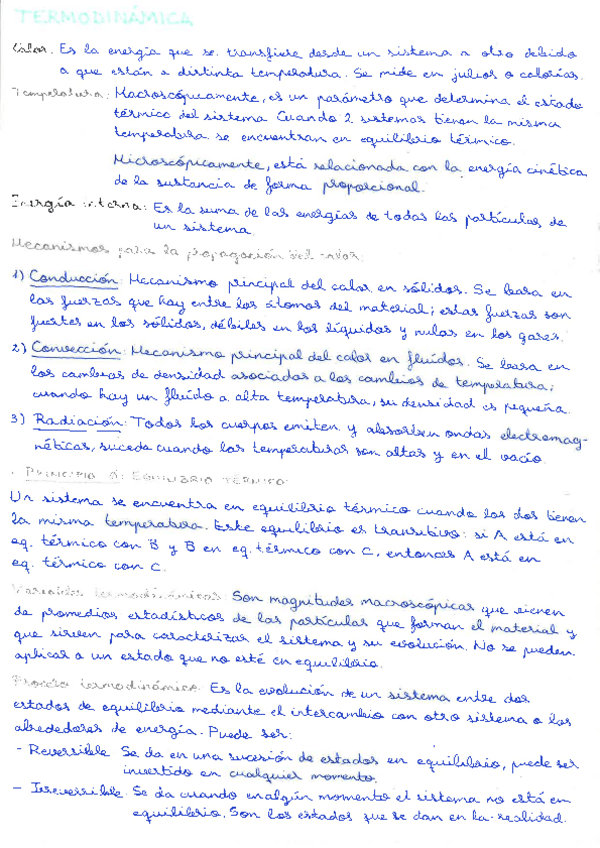 TERMODINÁMICA
Calor: Es la energía que se transfiere desde un sistema a otro debido
a que están a distinta temperatura. Se mide en julios o calorías.
Temperatura: Macroscópicamente, es un parámetro que determina el estado
térmico del sistema. Cuando 2 sistemas tienen la misma
temperatura se encuentran en equilibrio térmico.
Microscópicamente, está relacionada con la energía cinética
de la sustancia de forma proporcional.
Energía interna: Es la suma de las energías de todas las partículas de
un sistema.
Mecanismos para la propagación del calor:
1) Conducción: Mecanismo principal del calor en sólidos. Se basa en
las fuerzas que hay entre los átomos del material; estas fuerzas son
fuertes en los sólidos, débiles en los líquidos y nulas en los gases.
2) Convección: Mecanismo principal del calor en fluidos. Se basa en
los cambios de densidad asociados a los cambios de temperatura;
cuando hay un fluido a alta temperatura, su densidad es pequeña.
3) Radiación: Todos los cuerpos emiten y absorben ondas electromag-
néticas, sucede cuando las temperaturas son altas y en el vacío.
. PRINCIPIO 0: EQUILIBRIO TÉRMICO:
Un sistema se encuentra en equilibrio térmico cuando los dos tienen
la misma temperatura. Este equilibrio es transitivo: si A está en
eq. térmico con B y B en eq. térmico con C, entonces A está en
eq. térmico con C.
Variables termodinámicas: Son magnitudes macroscópicas que vienen
de promedios estadísticos de las partículas que forman el material y
que sirven para caracterizar el sistema y su evolución. No se pueden
aplicar a un estado que no esté en equilibrio.
Proceso termodinámico: Es la evolución de un sistema entre dos
estados de equilibrio mediante el intercambio con otro sistema o los
alrededores de energía. Puede ser:
- Reversible: Se da en una sucesión de estados en equilibrio, puede ser
invertido en cualquier momento.
- Irreversible: Se da cuando en algún momento el sistema no está en
equilibrio. Son los estados que se dan en la realidad.